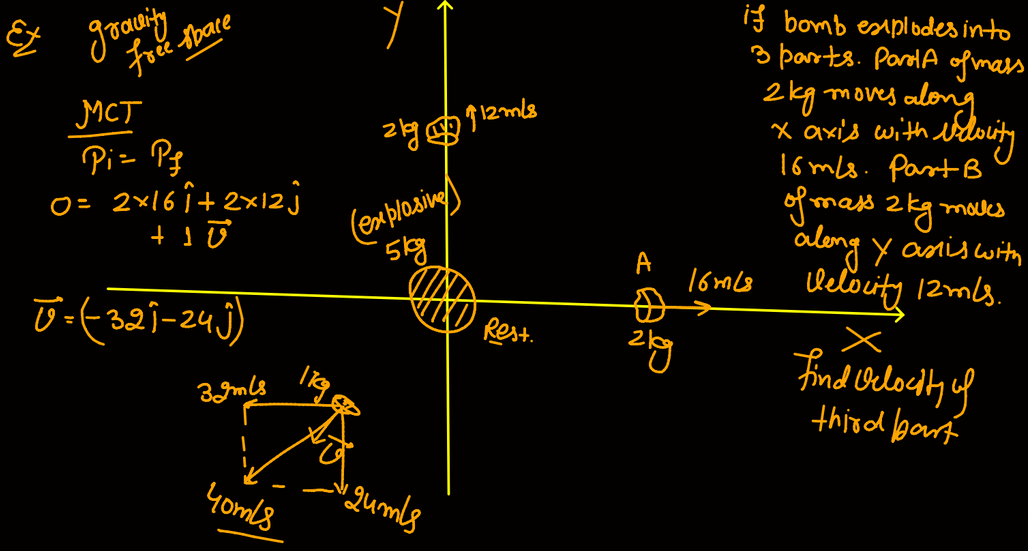 Ex gravity
free space
MCT
Pi = Pf
0 = 2×16 î + 2×12 ĵ
+ 1 v⃗
v⃗ = (-32î - 24ĵ)
32m/s
1kg
v⃗
40m/s
24m/s
Y
2kg
↑12m/s
(explosive)
5kg
Rest.
A
16m/s
2kg
X
if bomb explodes into
3 parts. Part A of mass
2kg moves along
x axis with velocity
16 m/s. Part B
of mass 2kg moves
along y axis with
velocity 12m/s.
find velocity of
third part